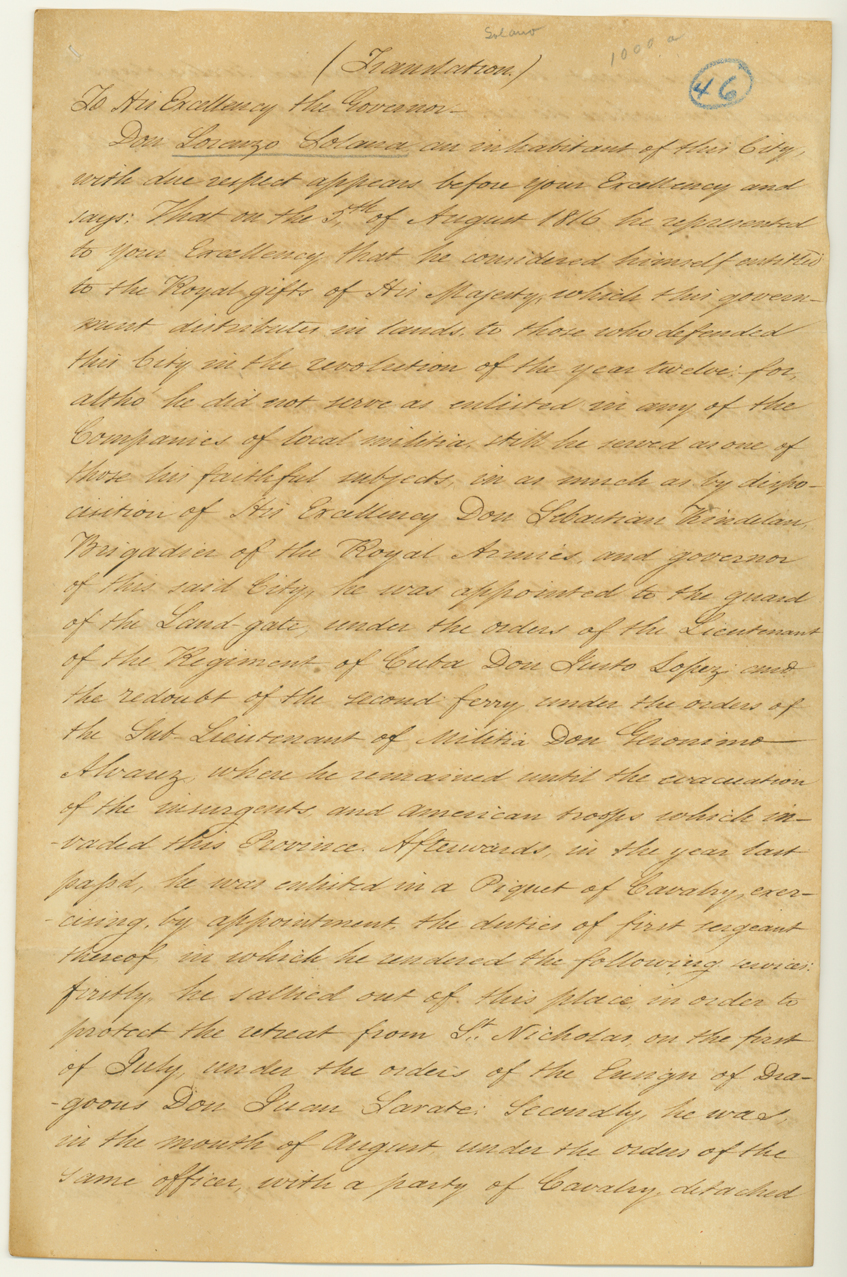 Solano
1000 a
(Translation.)
46
To His Excellency the Governor—
Don Lorenzo Solana an inhabitant of this City,
with due respect appears before your Excellency and
says: That on the 5th of August 1816 he represented
to your Excellency that he considered himself entitled
to the Royal gifts of His Majesty, which this govern-
ment distributes in lands, to those who defended
this City in the revolution of the year twelve: for,
altho' he did not serve as enlisted in any of the
Companies of local militia, still he served as one of
those his faithful subjects, in as much as by dispo-
cisition of His Excellency Don Sebastian Kindelan,
Brigadier of the Royal Armies, and governor
of this said City, he was appointed to the guard
of the Land-gate, under the orders of the Lieutenant
of the Regiment of Cuba Don Justo Lopez; and
the redoubt of the second ferry, under the orders of
the Sub-Lieutenant of Militia Don Geronimo
Alvarez, where he remained until the evacuation
of the insurgents and american troops which in-
-vaded this Province. Afterwards, in the year last
pass'd, he was enlisted in a Piquet of Cavalry, exer-
-cising, by appointment, the duties of first sergeant
thereof, in which he rendered the following services:
firstly, he sallied out of this place, in order to
protect the retreat from St. Nicholas, on the first
of July, under the orders of the Ensign of Dra-
-goons Don Juan Sarate: Secondly, he was,
in the month of August under the orders of the
same officer, with a party of Cavalry, detached